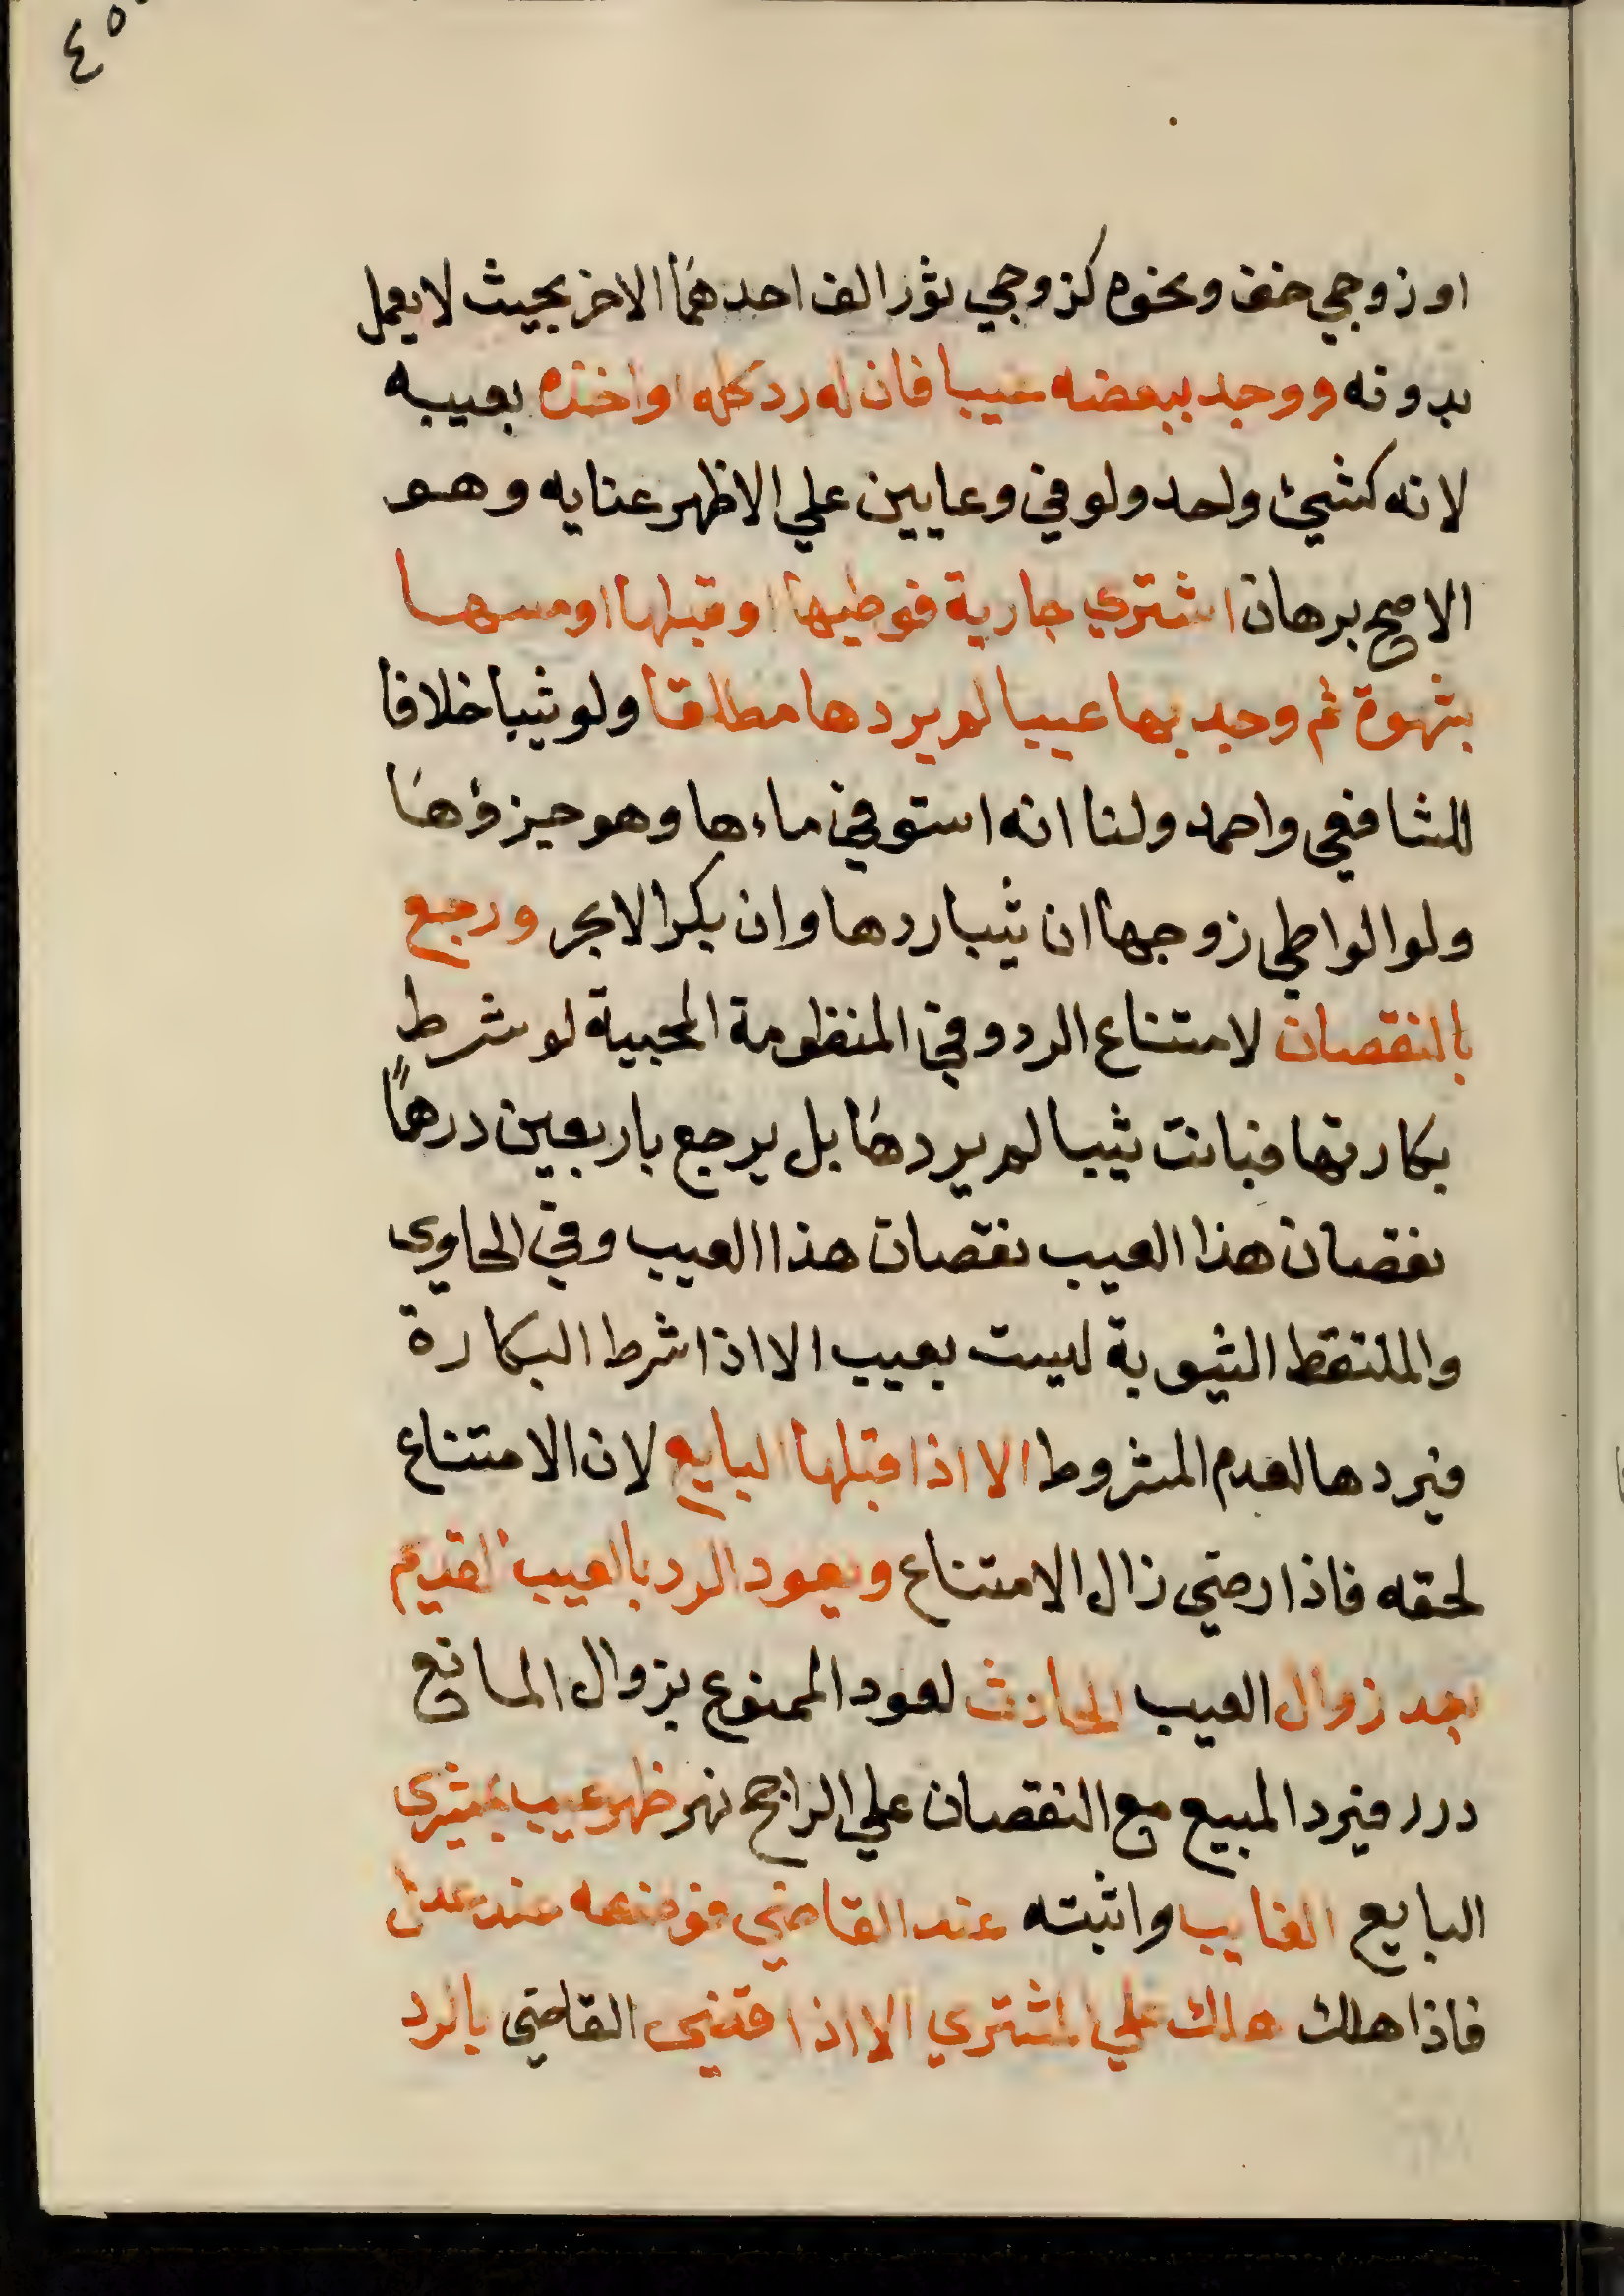 ٤٥
او زوجي خف ونحوه كزوجي ثور الف احدهما الاخر بحيث لا يعمل
بدونه ووجد ببعضه عيبا فان له رد كله او اخذه بعيبه
لانه كشيئ واحد ولو في وعايين علي الاظهر عنايه وهو
الاصح برهان اشتري جارية فوطيها او قبلها او مسها
بشهوة ثم وجد بها عيبا لم يردها مطلقا ولو ثيبا خلافا
للشافعي واحمد ولنا انه استوفي ماءها وهو جزؤها
ولو الواطي زوجها ان ثيبا ردها وان بكرا لا بحر ورجع
بالنقصان لامتناع الرد وفي المنظومة المحبية لو شرط
بكارتها فبانت ثيبا لم يردها بل يرجع باربعين درهمًا
نقصان هذا العيب نقصان هذا العيب وفي الحاوي
والملتقط الثيوبة ليست بعيب الا اذا شرط البكارة
فيردها لعدم المشروط الا اذا قبلها البايع لان الامتناع
لحقه فاذا رضي زال الامتناع ويعود الرد بالعيب القديم
بعد زوال العيب الحادث لعود الممنوع بزوال المانع
درر فيرد المبيع مع النقصان علي الراجح نهر ظهر عيب بمشري
البايع الغايب واثبته عند القاضي فوضعه عند عدل
فاذا هلك هلك علي المشتري الا اذا قضي القاضي بالرد